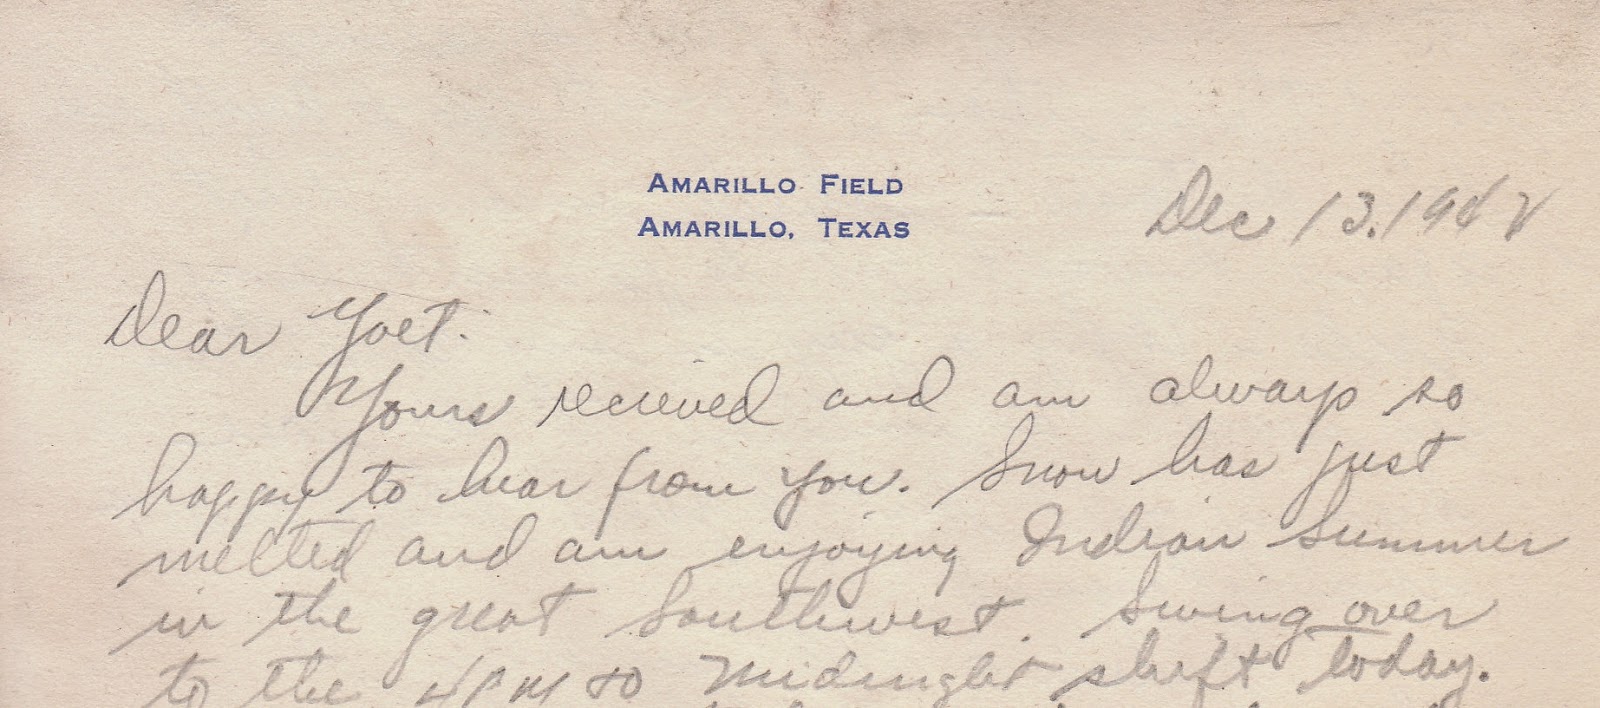 AMARILLO FIELD
AMARILLO, TEXAS
Dec 13. 1942
Dear Yoet:
Yours recieved and am always so
happy to hear from you. Snow has just
melted and am enjoying Indian Summer
in the great Southwest. Swing over
to the 4 PM to Midnight shift today.